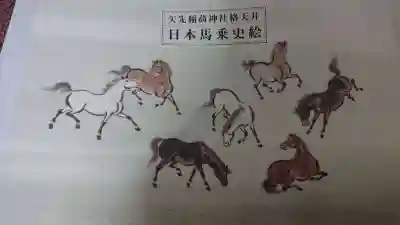 矢先稲荷神社格天井
日本馬乗史絵